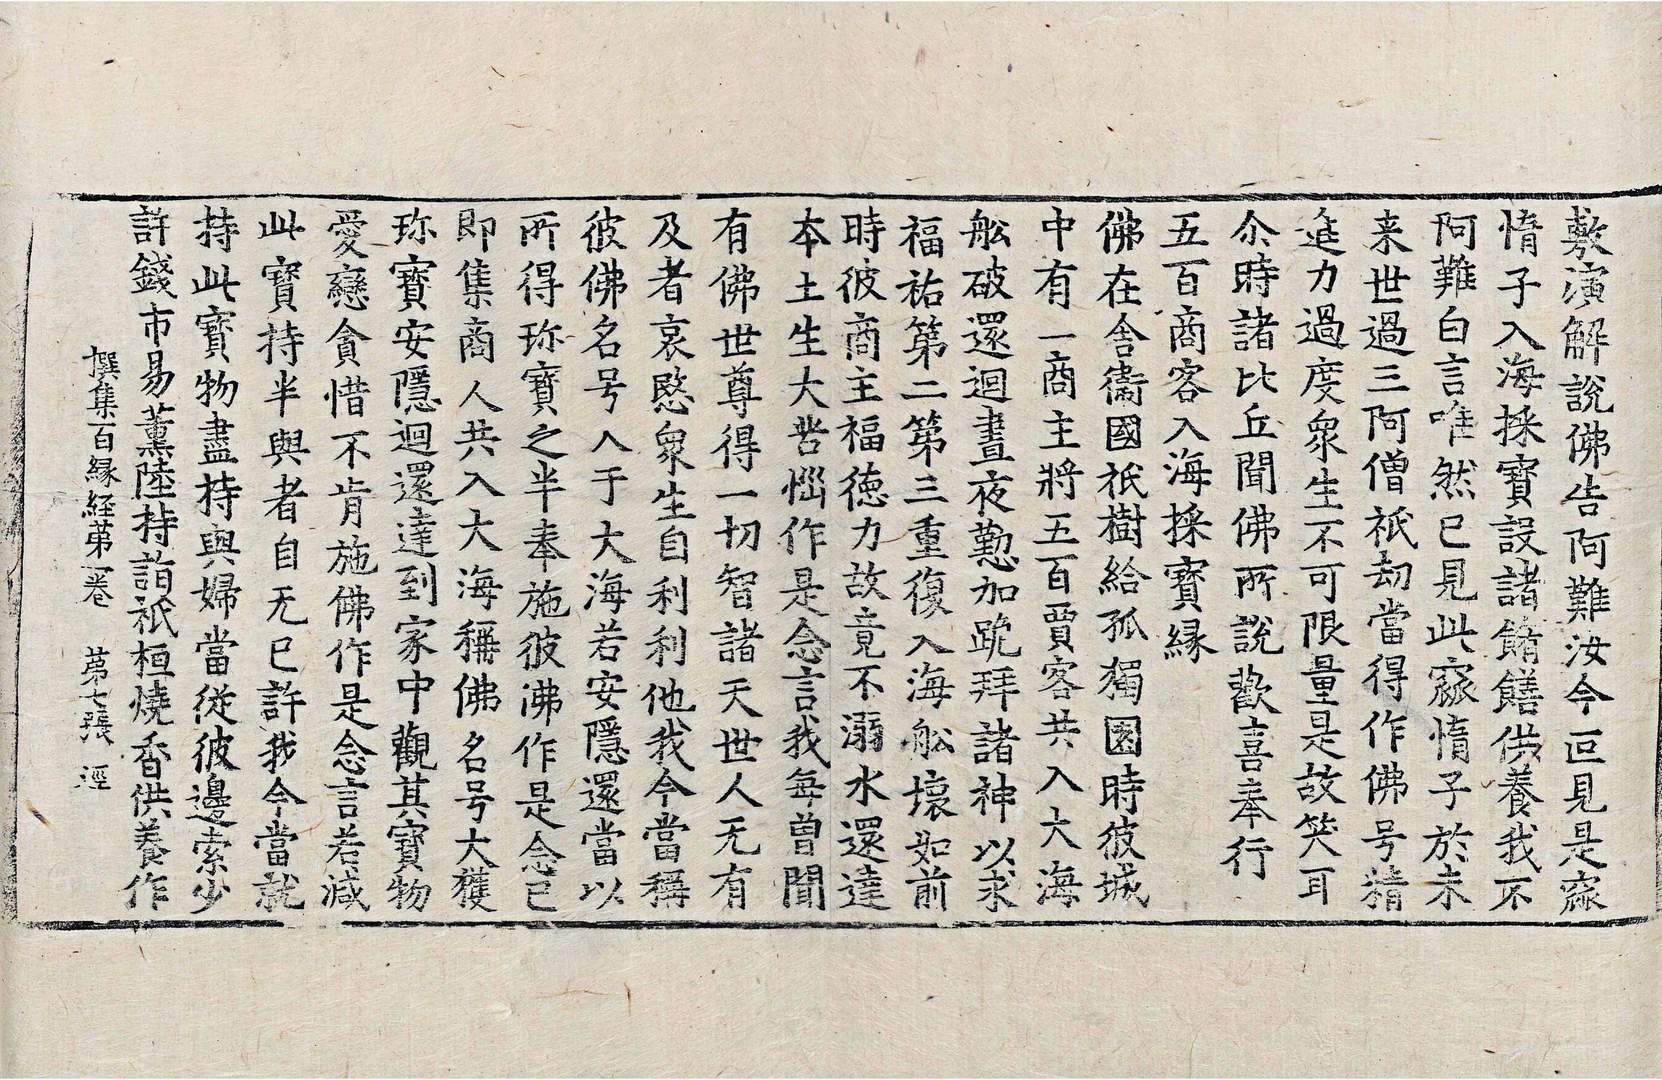 敷演解說佛告阿難汝今叵見是窳
惰子入海採寶設諸餚饍供養我不
阿難白言唯然已見此窳惰子於未
来世過三阿僧祇劫當得作佛号精
進力過度衆生不可限量是故笑耳
尒時諸比丘聞佛所說歡喜奉行
五百商客入海採寶緣
佛在舍衞國祇樹給孤獨園時彼城
中有一商主將五百賈客共入大海
舩破還迴晝夜懃加跪拜諸神以求
福祐第二第三重復入海舩壞如前
時彼商主福徳力故竟不溺水還達
本土生大苦惱作是念言我每曽聞
有佛世尊得一切智諸天世人无有
及者哀愍衆生自利利他我今當稱
彼佛名号入于大海若安隱還當以
所得珎寶之半奉施彼佛作是念已
即集商人共入大海稱佛名号大獲
珎寶安隱迴還達到家中觀其寶物
愛戀貪惜不肯施佛作是念言若減
此寶持半與者自无已許我今當就
持此寶物盡持與婦當従彼邊索少
許錢市易薰陸持詣祇桓燒香供養作
撰集百縁経第一卷　第七張　逕